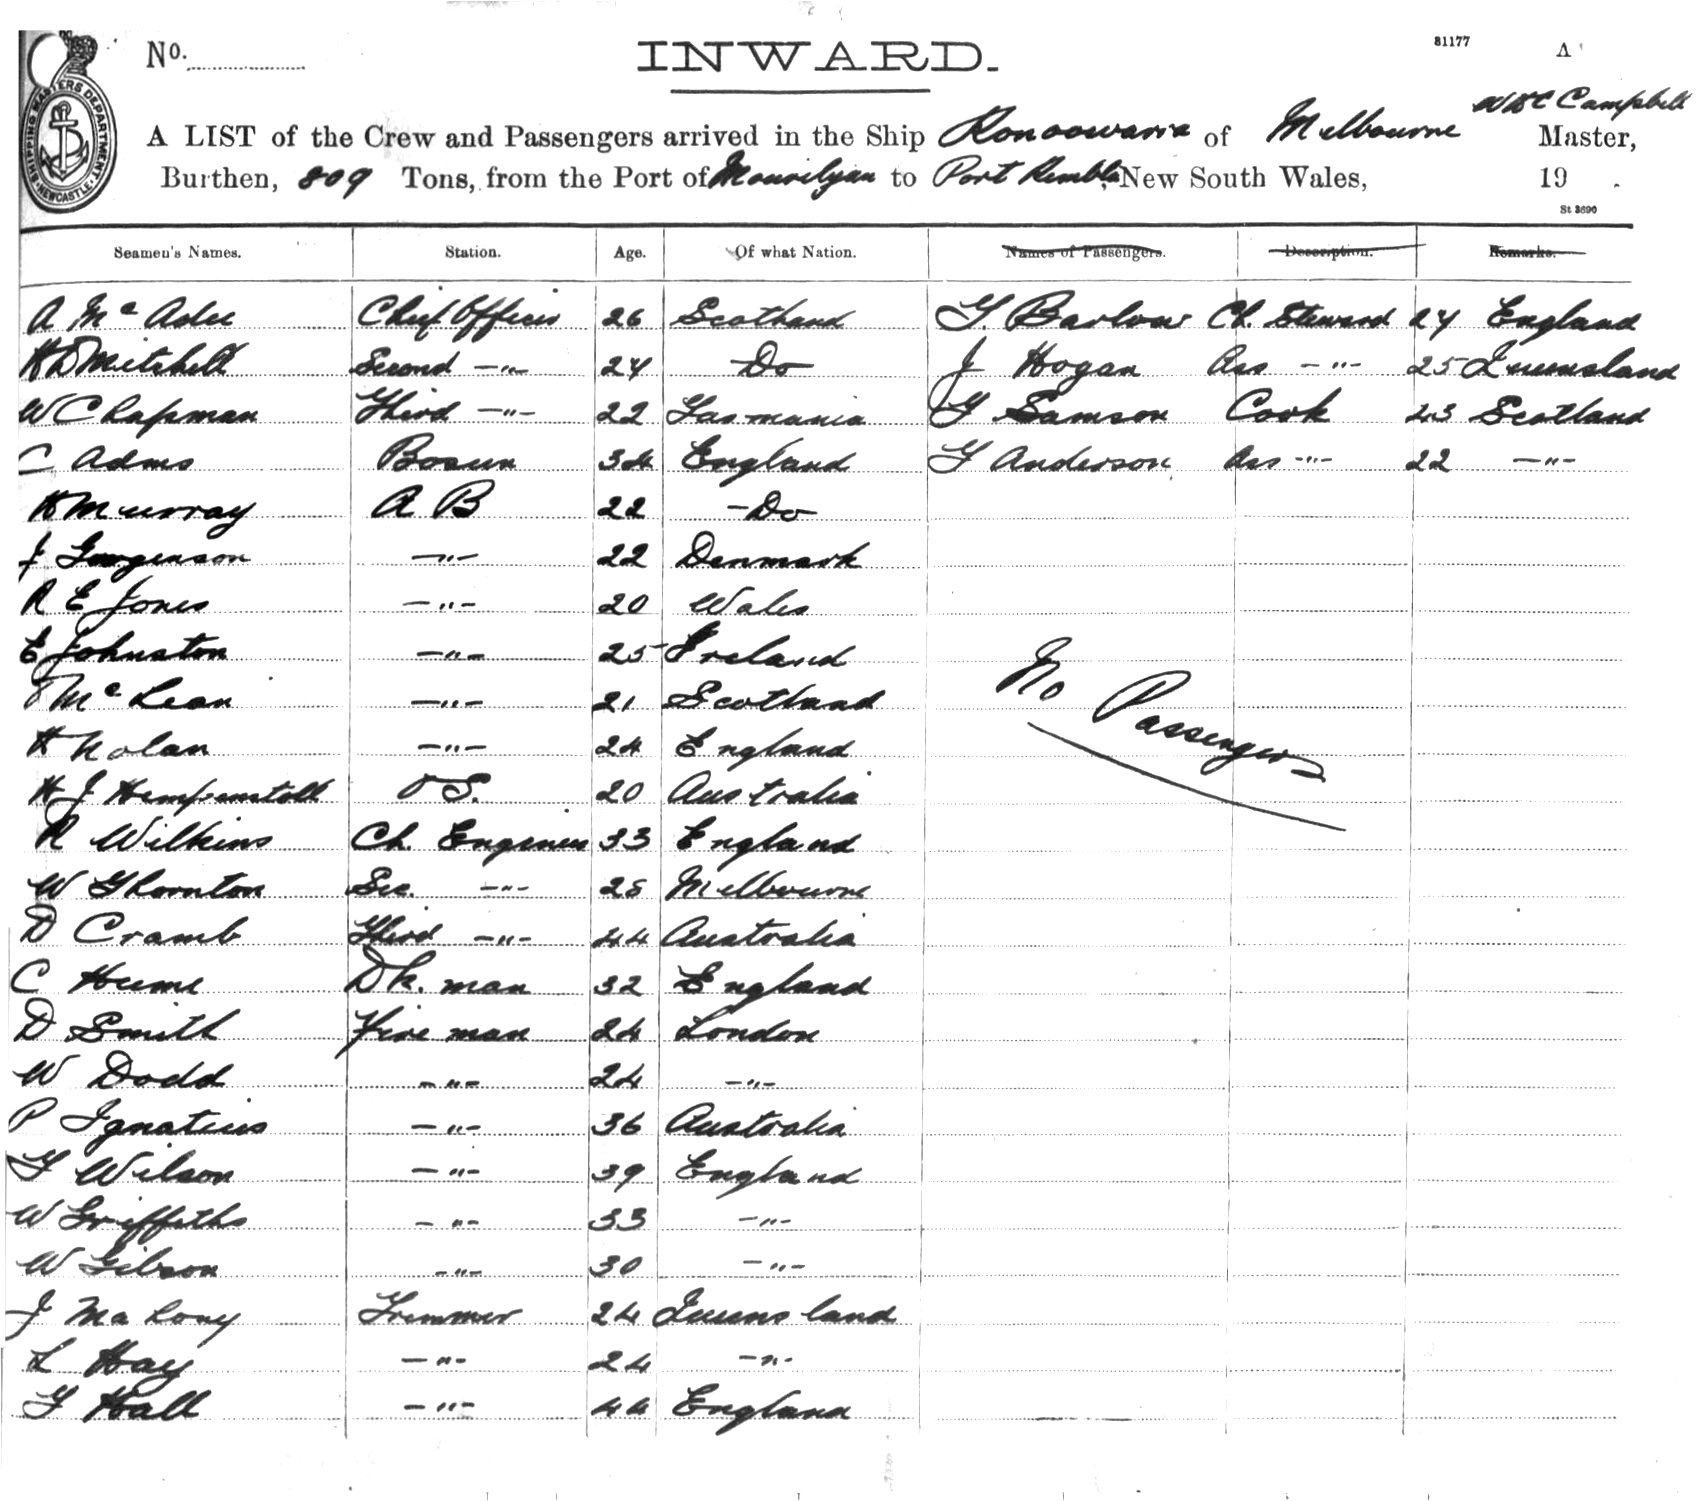 No.
INWARD.
81177
A
W D C Campbell
A LIST of the Crew and Passengers arrived in the Ship Konoowarra of Melbourne Master,
Burthen, 809 Tons, from the Port of Mourilyan to Port Kembla, New South Wales, 19 .
St 3690
SHIPPING MASTERS DEPARTMENT. NEWCASTLE
Seamen's Names. Station. Age. Of what Nation. Names of Passengers. Description. Remarks.
A Mc Adie Chief Officer 26 Scotland G. Barlow Ch. Steward 24 England
H D Mitchell Second -"- 24 Do J Hogan Ass -"- 25 Queensland
W Chapman Third -"- 22 Tasmania G Samson Cook 23 Scotland
C Adms Bosun 34 England G Anderson Ass -"- 22 -"-
H Murray A B 22 -Do
J Gorgenson -"- 22 Denmark
R E Jones -"- 20 Wales
E Johnston -"- 25 Ireland
Mc Lean -"- 21 Scotland
H Nolan -"- 24 England
H J Hempenstall O S. 20 Australia
R Wilkins Ch. Engineer 33 England
W Thornton Sec. -"- 28 Melbourne
D Cramb Third -"- 44 Australia
C Hume Dk. man 32 England
D Smith Fire man 24 London
W Dodd -"- 24 -"-
P Ignatius -"- 36 Australia
G Wilson -"- 39 England
W Griffiths -"- 33 -"-
W Gibson -"- 30 -"-
J Malony Trimmer 24 Queensland
L Hay -"- 24 -"-
G Hall -"- 44 England
No Passengers